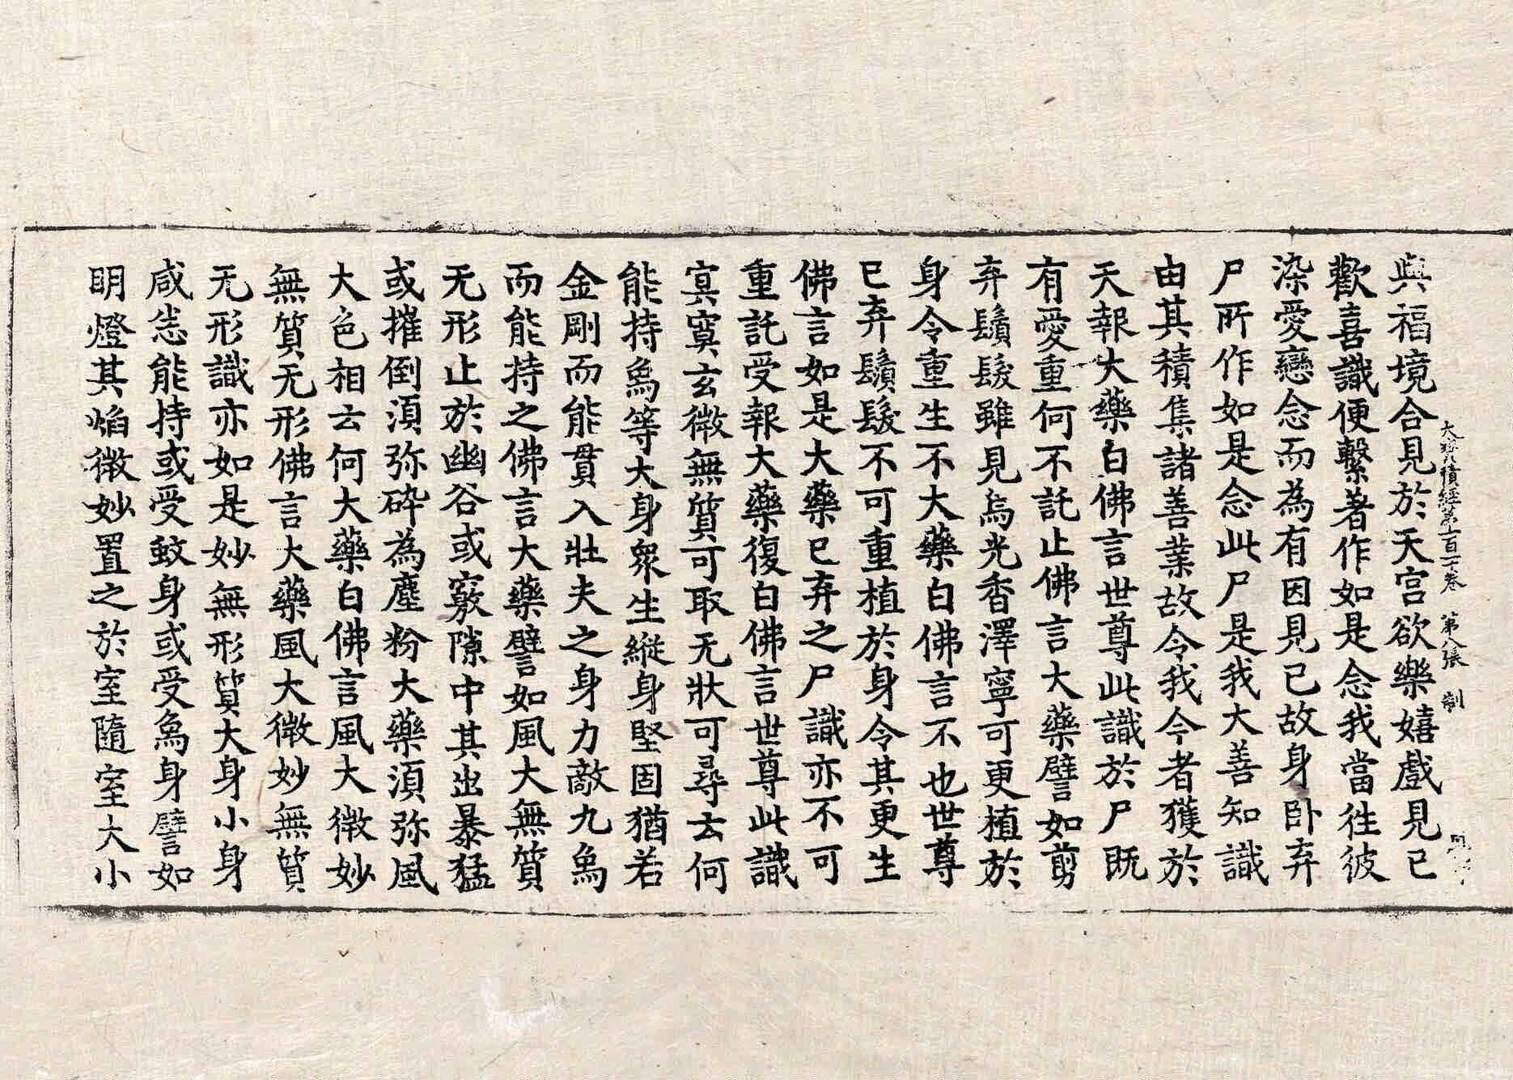 大寶積經第一百十卷 第八張 制
與福境合見於天宮欲樂嬉戲見已
歡喜識便繫著作如是念我當往彼
染愛戀念而為有因見已故身卧弃
尸所作如是念此尸是我大善知識
由其積集諸善業故令我今者獲於
天報大藥白佛言世尊此識於尸既
有愛重何不託止佛言大藥譬如剪
弃鬚髮雖見烏光香澤寧可更植於
身令重生不大藥白佛言不也世尊
已弃鬚髮不可重植於身令其更生
佛言如是大藥已弃之尸識亦不可
重託受報大藥復白佛言世尊此識
冥寞玄微無質可取无狀可尋云何
能持象等大身衆生縱身堅固猶若
金剛而能貫入壯夫之身力敵九象
而能持之佛言大藥譬如風大無質
无形止於幽谷或竅隙中其出暴猛
或摧倒須弥碎為塵粉大藥須弥風
大色相云何大藥白佛言風大微妙
無質无形佛言大藥風大微妙無質
无形識亦如是妙無形質大身小身
咸悉能持或受蚊身或受象身譬如
明燈其焰微妙置之於室隨室大小